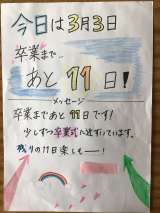 今日は3月3日
卒業まで..
あと11日!
メッセージ
卒業まであと11日です!
少しずつ卒業式に近ずいています。
残りの11日楽しもー!